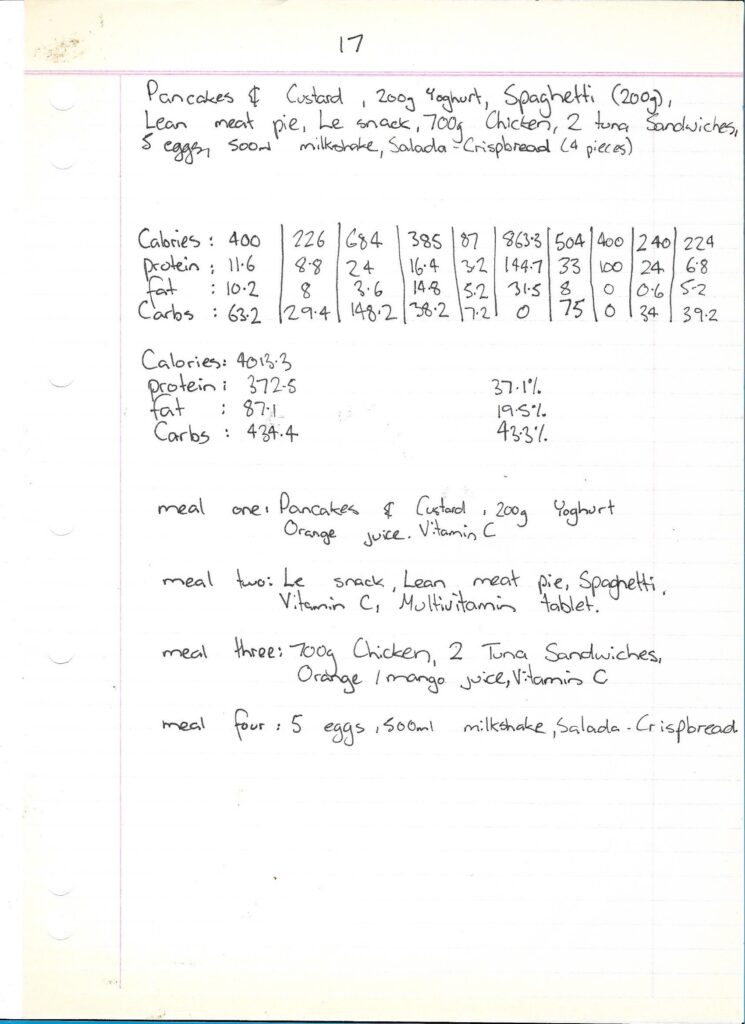 17
Pancakes & Custard, 200g Yoghurt, Spaghetti (200g),
Lean meat pie, Le snack, 700g Chicken, 2 tuna Sandwiches,
5 eggs, 500ml milkshake, Salada-Crispbread (4 pieces)
Calories: 400 | 226 | 684 | 385 | 87 | 863.3 | 504 | 400 | 240 | 224
protein: 11.6 | 8.8 | 24 | 16.4 | 3.2 | 144.7 | 33 | 100 | 24 | 6.8
fat: 10.2 | 8 | 3.6 | 14.8 | 5.2 | 31.5 | 8 | 0 | 0.6 | 5.2
Carbs: 63.2 | 29.4 | 148.2 | 38.2 | 7.2 | 0 | 75 | 0 | 34 | 39.2
Calories: 4013.3
protein: 372.5 37.1%
fat: 87.1 19.5%
Carbs: 434.4 43.3%
meal one: Pancakes & Custard, 200g Yoghurt
Orange juice. Vitamin C
meal two: Le snack, Lean meat pie, Spaghetti,
Vitamin C, Multivitamin tablet.
meal three: 700g Chicken, 2 Tuna Sandwiches,
Orange/mango juice, Vitamin C
meal four: 5 eggs, 500ml milkshake, Salada-Crispbread